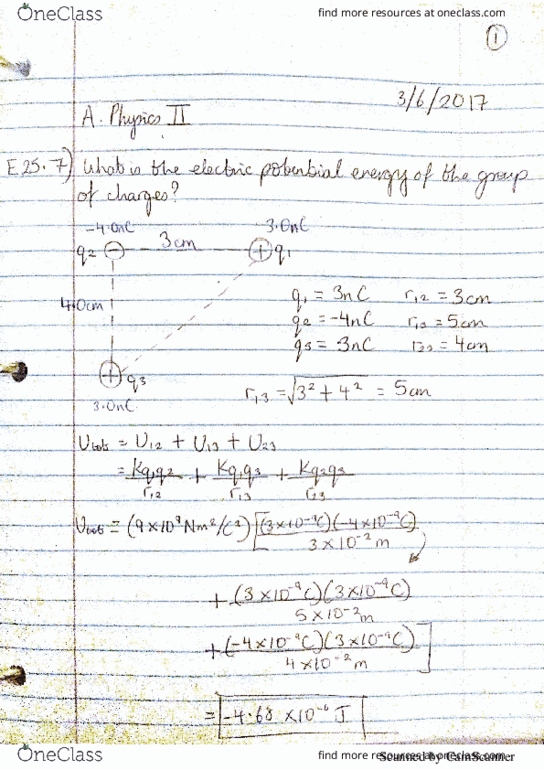 OneClass
find more resources at oneclass.com
1
3/6/2017
A. Physics II
E25.7) What is the electric potential energy of the group
of charges?
-4.0nC
3.0nC
q2 3cm q1
4.0cm
q1 = 3nC r12 = 3cm
q2 = -4nC r13 = 5cm
q3 = 3nC r23 = 4cm
q3
3.0nC
r13 = √3² + 4² = 5cm
Utot = U12 + U13 + U23
= Kq1q2/r12 + Kq1q3/r13 + Kq2q3/r23
Utot = (9×10⁹Nm²/C²) [(3×10⁻⁹C)(-4×10⁻⁹C)
3×10⁻²m
+ (3×10⁻⁹C)(3×10⁻⁹C)
5×10⁻²m
+ (-4×10⁻⁹C)(3×10⁻⁹C)]
4×10⁻²m
= -4.68 ×10⁻⁶ J
OneClass
find more resources at oneclass.com
Scanned by CamScanner